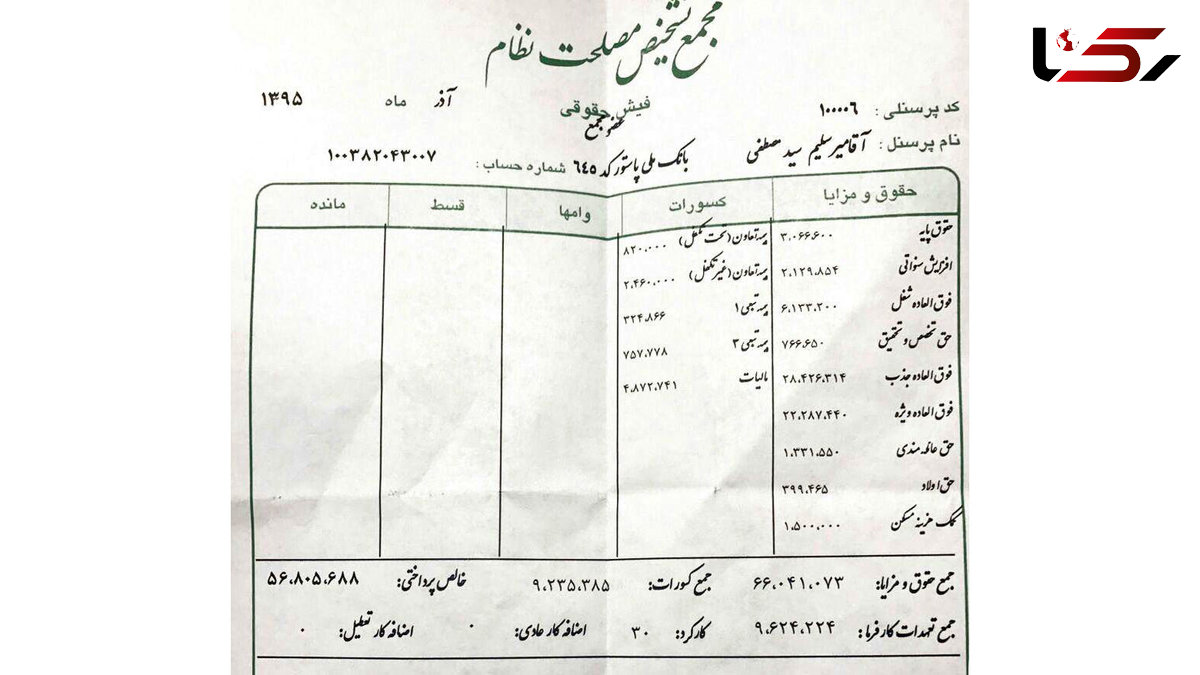 رکنا
مجمع تشخیص مصلحت نظام
کد پرسنلی: ۱۰۰۰۰۶ فیش حقوقی آذر ماه ۱۳۹۵
عضو مجمع
نام پرسنل: آقامیرسلیم سید مصطفی بانک ملی پاستور کد ۶۴۵ شماره حساب: ۱۰۰۳۸۲۰۴۳۰۰۷
حقوق و مزایا کسورات وامها قسط مانده
حقوق پایه ۳،۰۶۶،۶۰۰ بیمه تعاون (تحت تکفل) ۸۲۰،۰۰۰
افزایش سنواتی ۲،۱۲۹،۸۵۴ بیمه تعاون (غیر تکفل) ۲،۴۶۰،۰۰۰
فوق العاده شغل ۶،۱۳۳،۲۰۰ بیمه تبعی ۱ ۳۲۴،۸۶۶
حق تخصص و تحقیق ۷۶۶،۶۵۰ بیمه تبعی ۳ ۷۵۷،۷۷۸
فوق العاده جذب ۲۸،۴۲۶،۳۱۴ مالیات ۴،۸۷۲،۷۴۱
فوق العاده ویژه ۲۲،۲۸۷،۴۴۰
حق عائله مندی ۱،۳۳۱،۵۵۰
حق اولاد ۳۹۹،۴۶۵
کمک هزینه مسکن ۱،۵۰۰،۰۰۰
جمع حقوق و مزایا: ۶۶،۰۴۱،۰۷۳ جمع کسورات: ۹،۲۳۵،۳۸۵ خالص پرداختی: ۵۶،۸۰۵،۶۸۸
جمع تعهدات کارفرما: ۹،۶۲۴،۲۲۴ کارکرد: ۳۰ اضافه کار عادی: ۰ اضافه کار تعطیل: ۰